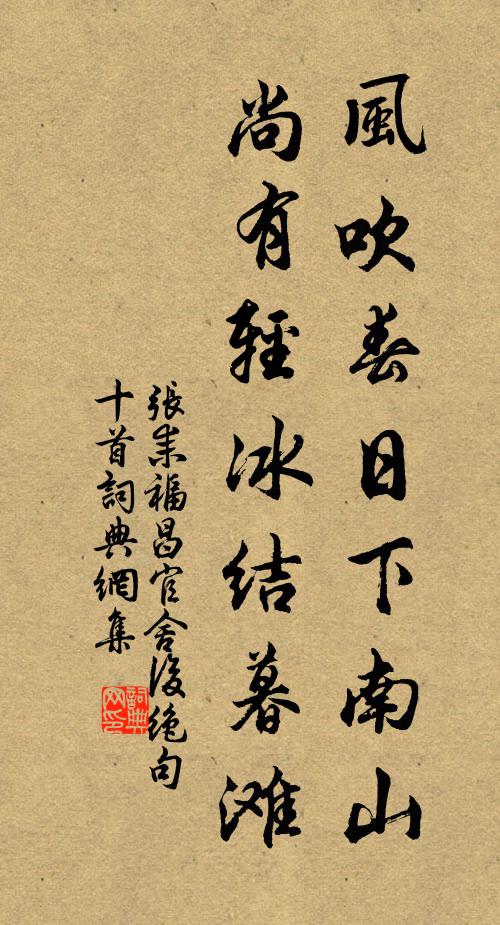 風吹春日下南山
尚有輕冰結暮滩
張耒福昌官舍後絶句
十首詞典網集
詞典
网印